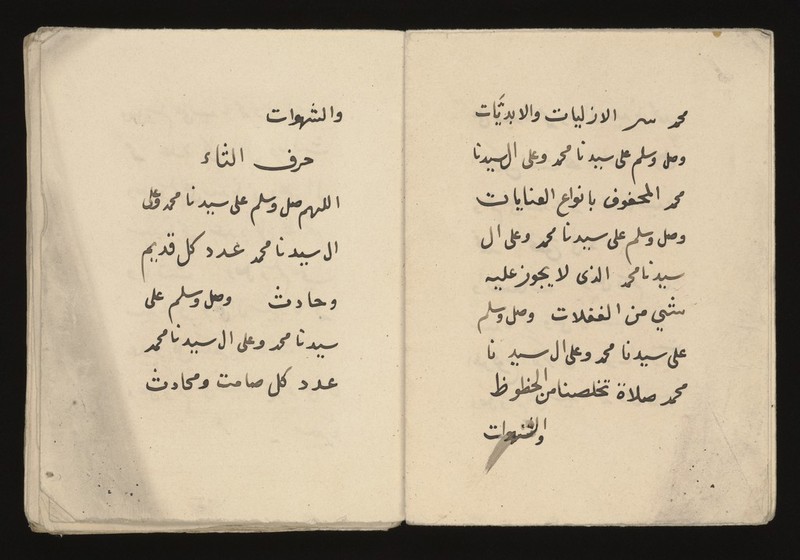 محمد سر الازليات والابديَّات
وصل وسلم على سيدنا محمد وعلى ال سيدنا
محمد المحفوف بانواع العنايات
وصل وسلم على سيدنا محمد وعلى ال
سيدنا محمد الذى لا يجوز عليه
شيي من الغفلات وصل وسلم
على سيدنا محمد وعلى ال سيد نا
محمد صلاة تخلصنا من الحظوظ
والشهوات
والشهوات
حرف الثاء
اللهم صل وسلم على سيدنا محمد وعلى
ال سيدنا محمد عدد كل قديم
وحادث وصل وسلم على
سيدنا محمد وعلى ال سيدنا محمد
عدد كل صامت ومحادث